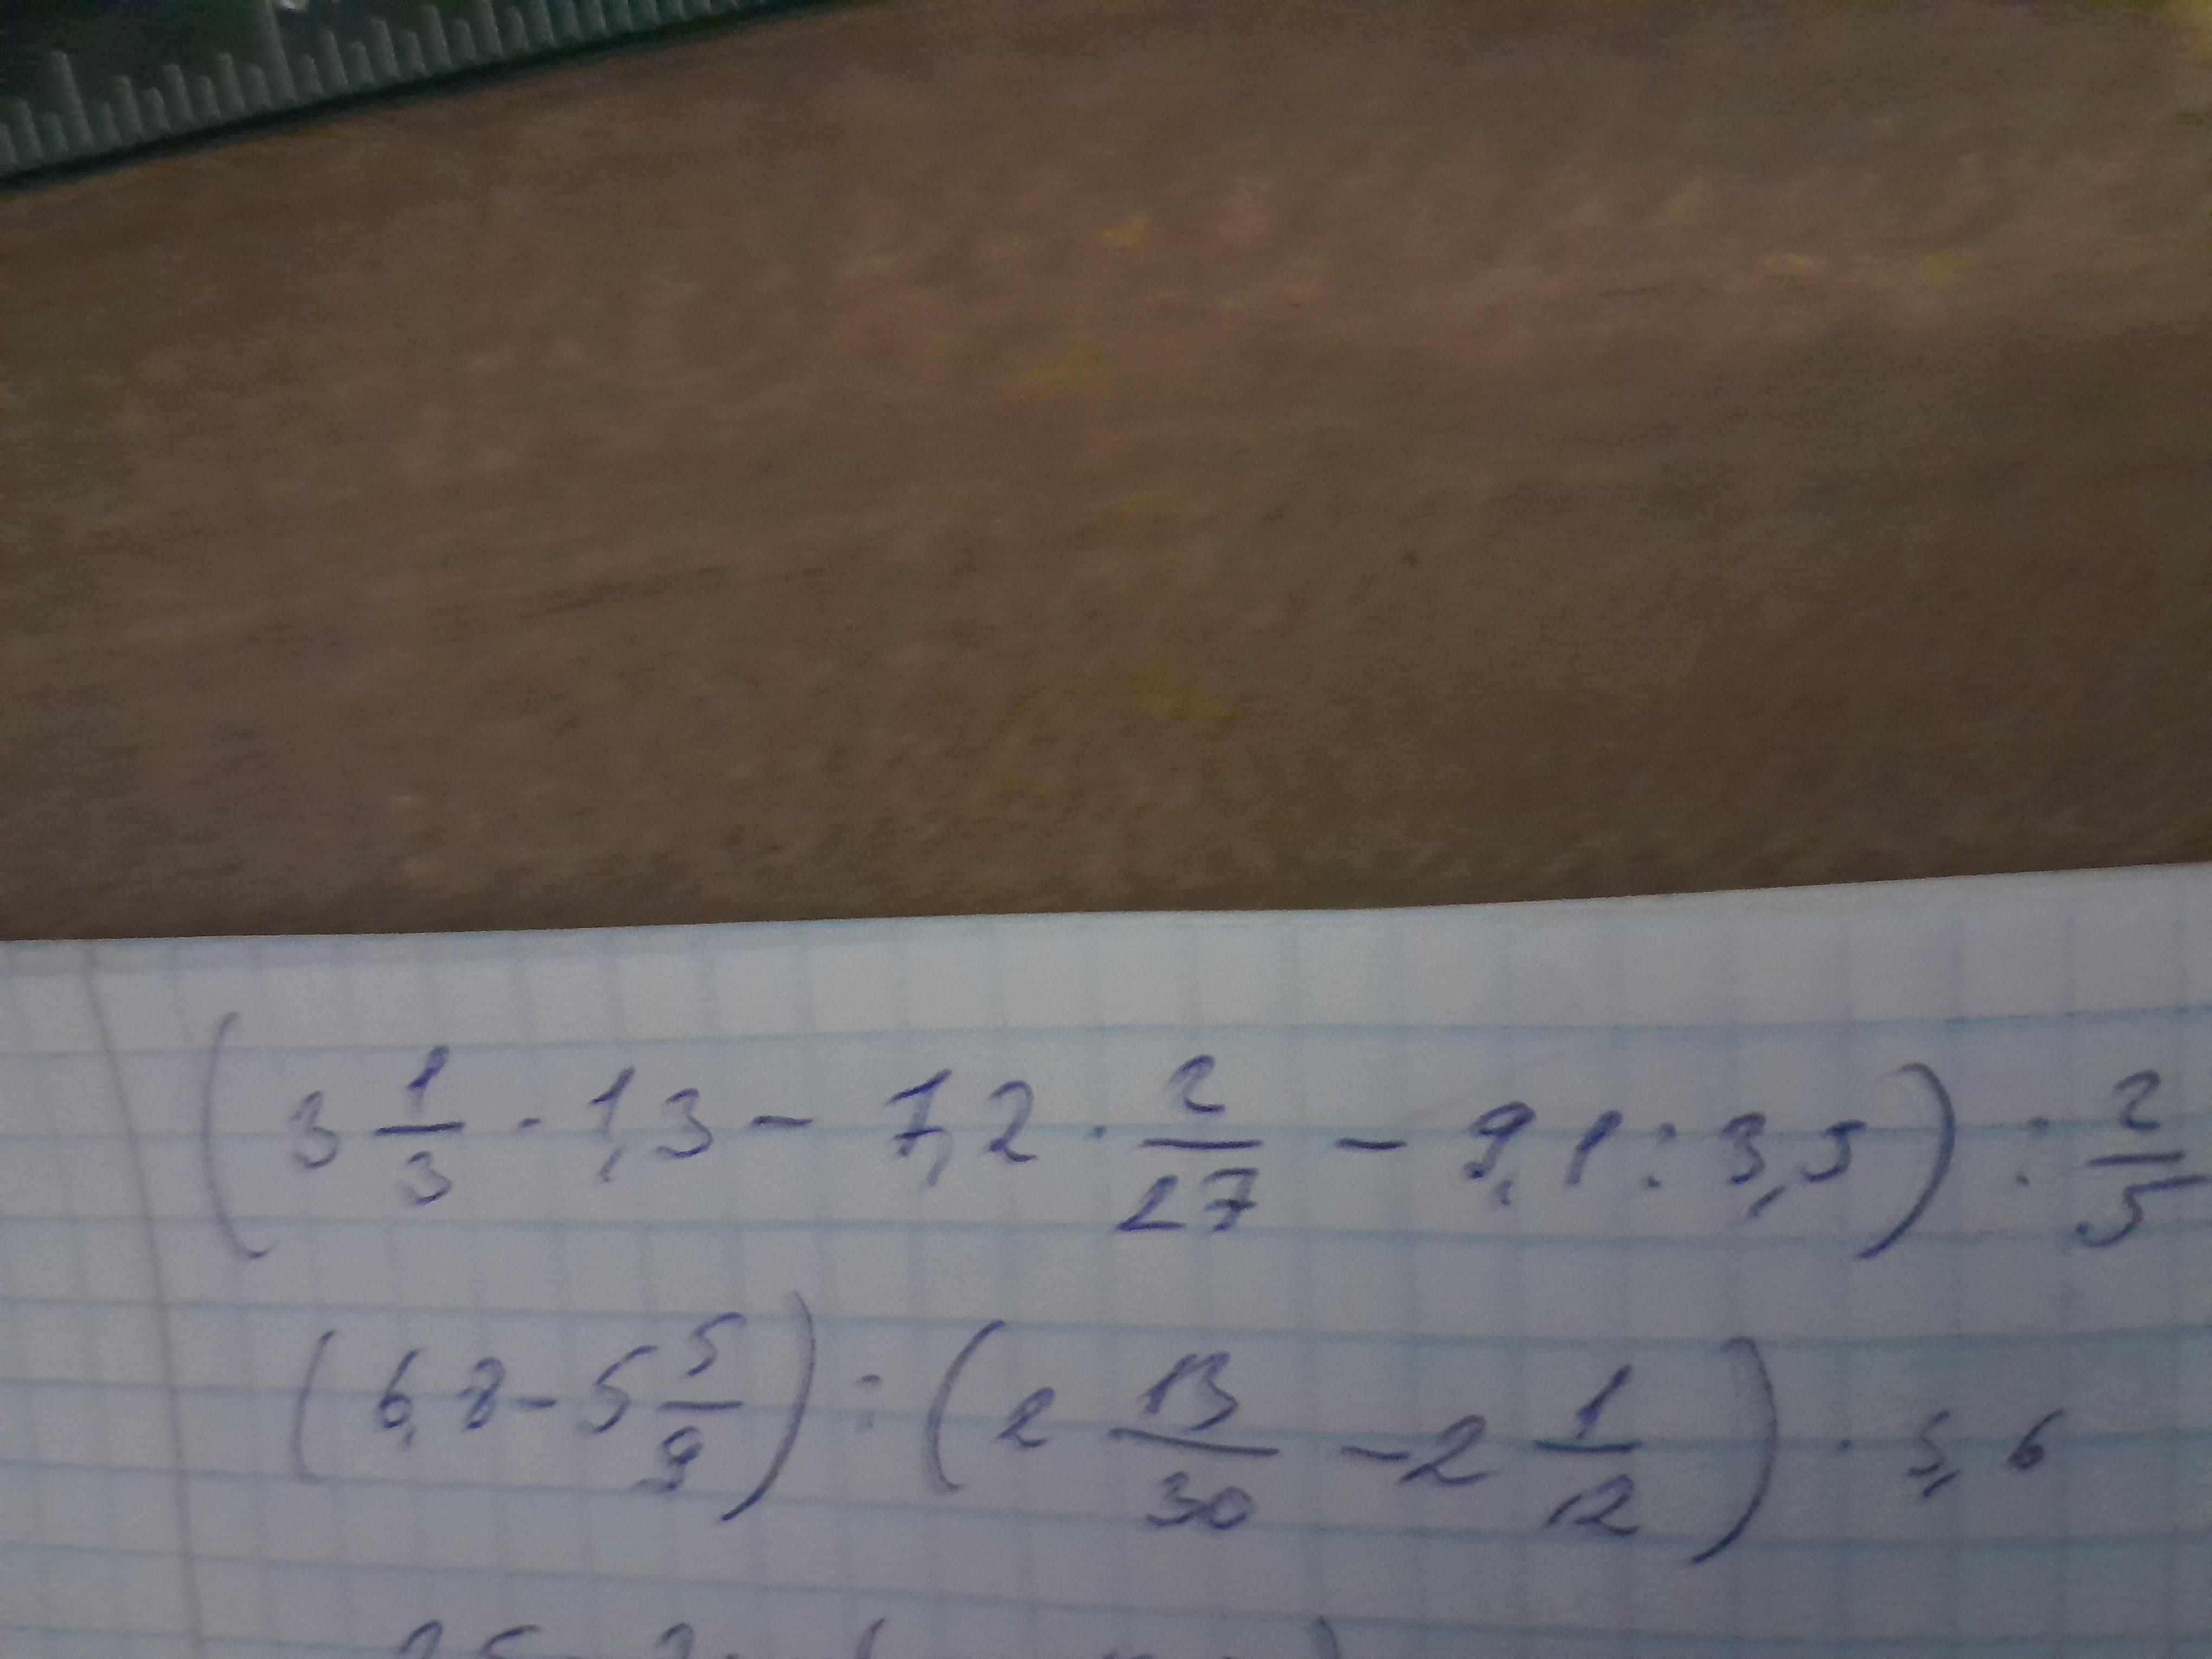 (3 1/3 · 1,3 − 7,2 · 2/27 − 9,1 : 3,5) : 2/5
(6,8 − 5 5/9) : (2 13/30 − 2 1/12) · 5,6